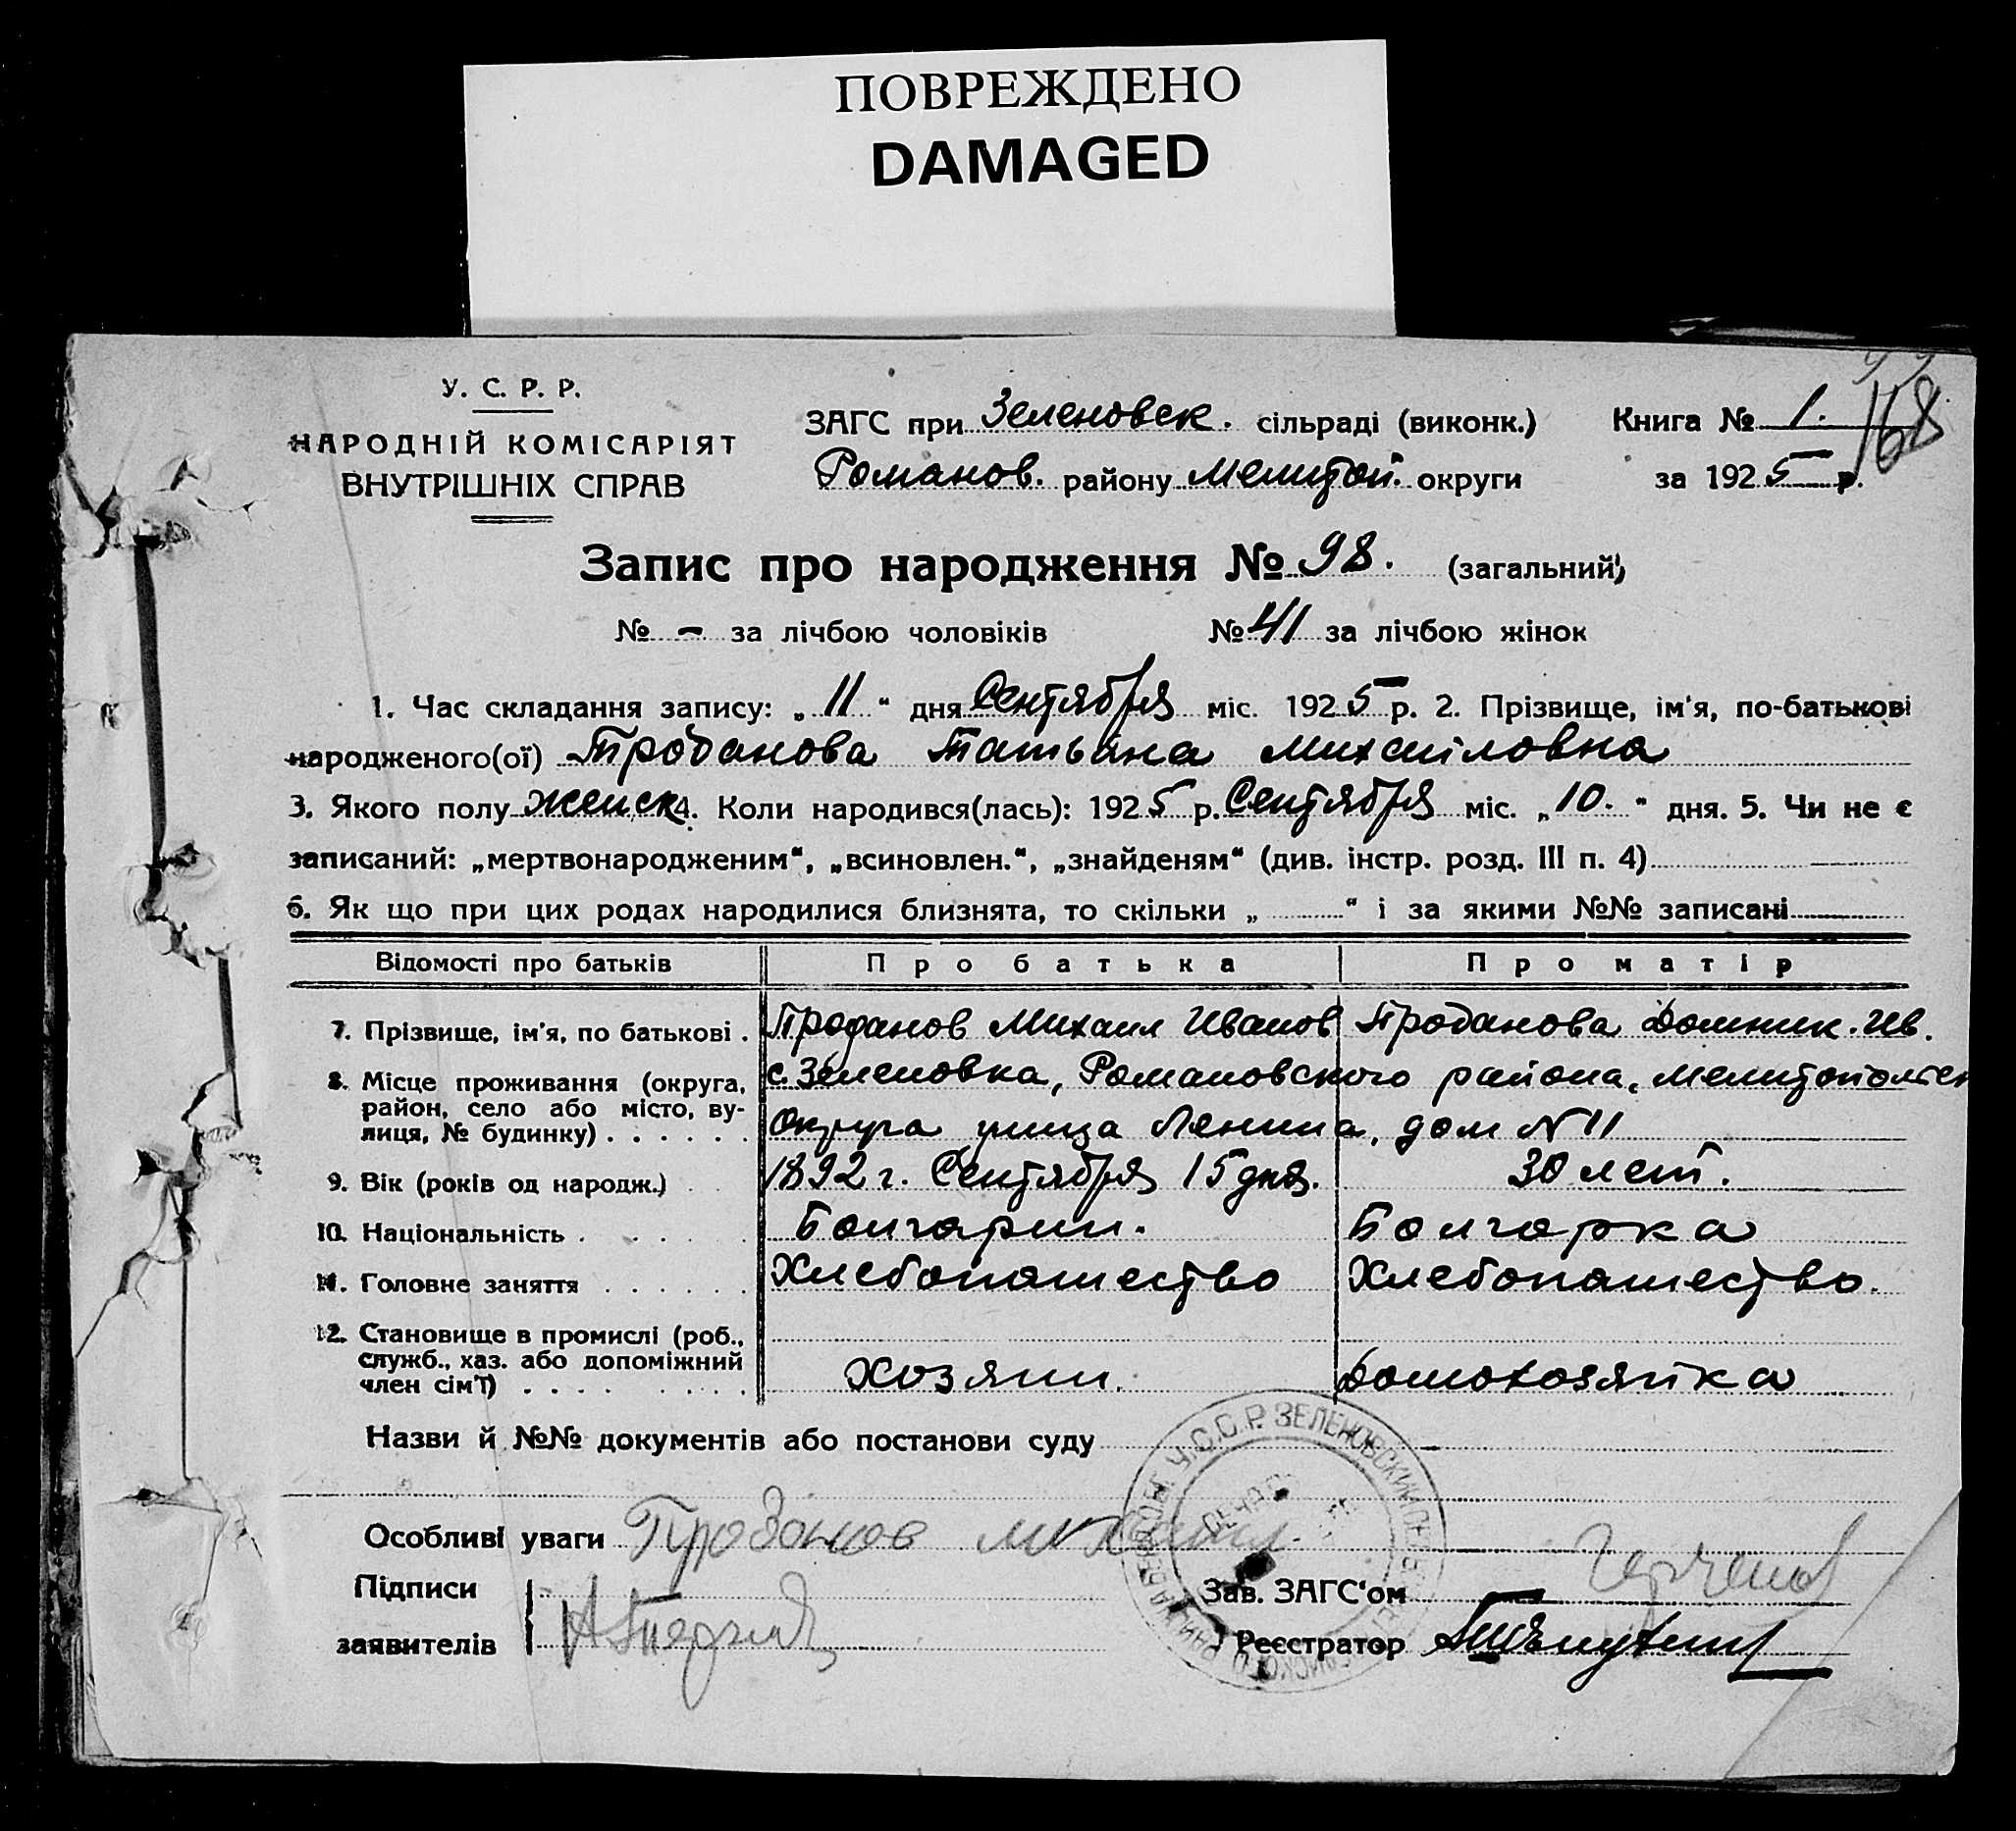 ПОВРЕЖДЕНО
DAMAGED
У. С. Р. Р.
НАРОДНІЙ КОМІСАРІЯТ
ВНУТРІШНІХ СПРАВ
ЗАГС при Зеленовск. сільраді (виконк.)
Романов. району Мелитоп. округи
Книга № 1.
168
за 1925 р.
Запис про народження № 98. (загальний)
№ - за лічбою чоловіків № 41 за лічбою жінок
1. Час складання запису: „11“ дня Сентября міс. 1925 р. 2. Прізвище, ім'я, по-батькові
народженого(ої) Проданова Татьяна Михаиловна
3. Якого полу женск 4. Коли народився(лась): 1925 р. Сентября міс. „10.“ дня. 5. Чи не є
записаний: „мертвонародженим“, „всиновлен.“, „знайденям“ (див. інстр. розд. III п. 4)
6. Як що при цих родах народилися близнята, то скільки „ “ і за якими №№ записані
Відомості про батьків Про батька Про матір
7. Прізвище, ім'я, по батькові . Проданов Михаил Иванов Проданова Домник. Ив.
8. Місце проживання (округа, район, село або місто, вулиця, № будинку) . . . . . . с. Зеленовка, Романовского района, Мелитопольск
Округа улица Ленина, дом N 11
9. Вік (років од народж.) 1892 г. Сентября 15 дня. 30 лет.
10. Національність . Болгарин. Болгарка
11. Головне заняття . . . . . . Хлебопашество Хлебопашество.
12. Становище в промислі (роб., служб., хаз. або допоміжний член сім'ї) . . . . Хозяин. Домохозяйка
Назви й №№ документів або постанови суду
Особливі уваги Проданов михаил
Підписи
заявителів
Зав. ЗАГС'ом
Реєстратор
У.С.С.Р. ЗЕЛЕНОВСКИЙ